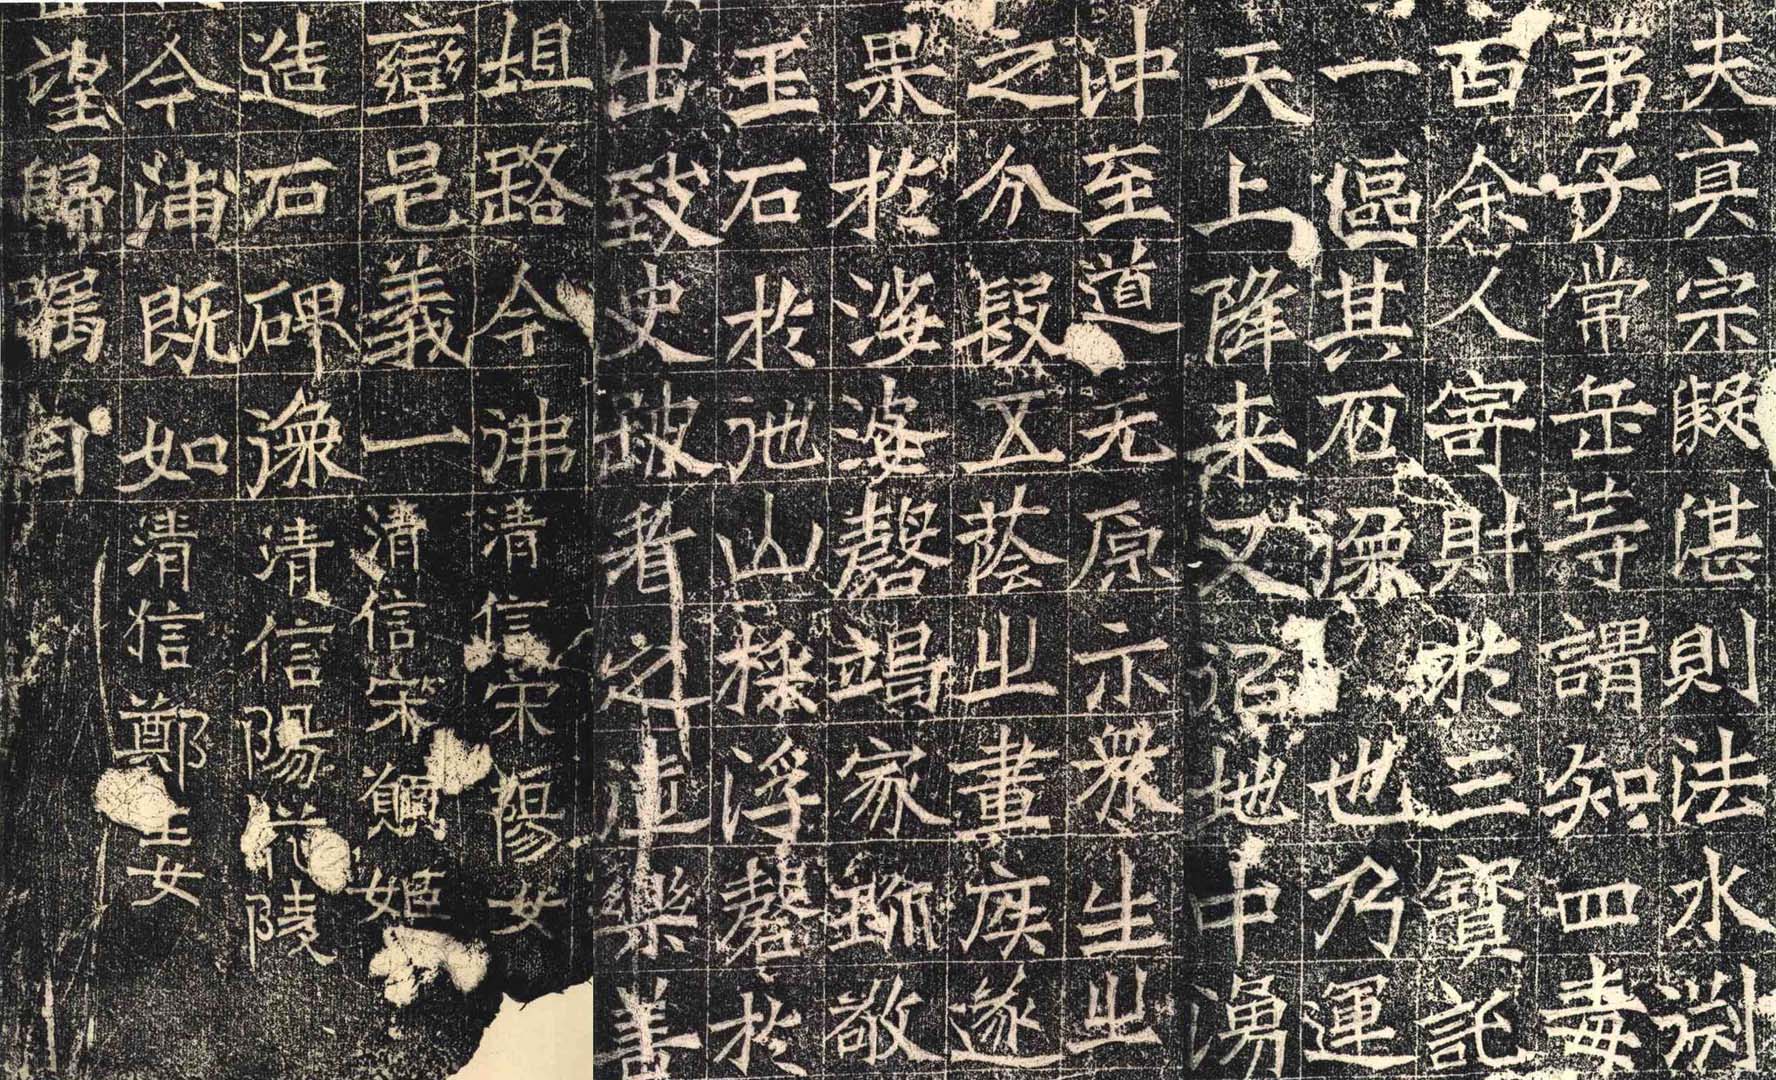 夫真宗凝湛則法水渕
弟子常岳等謂知四毒
百余人寄財於三寶託
一區其石像也乃運
天上降来又地中湧
沖至道无原示衆生之
之分段五蔭之畫疾遂
果於海婆磬竭家珎敬
玉石於他山採浮磬於
出致史跛看之徒樂善
路今沸清信宋陽女
邑義一清信宋姬
造石碑像清信陽花陵
今浦既如清信鄭王女
望歸矚目